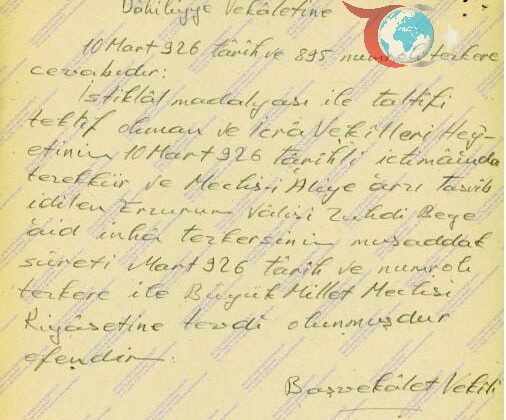 Dâhiliyye Vekâletine
10 Mart 926 târih ve 895 numrolu tezkere
cevabıdır:
İstiklâl madalyası ile taltifi
teklif olunan ve İcrâ Vekilleri Hey-
etinin 10 Mart 926 târihli ictimâında
tezekkür ve Meclis-i Âliye arzı tasvîb
idilen Erzurum Vâlisi Zühdi Beye
âid inhâ tezkersinin musaddak
sûreti Mart 926 târih ve numrolı
tezkere ile Büyük Millet Meclisi
Riyâsetine tevdi olunmuşdur
efendim.
Başvekâlet Vekili